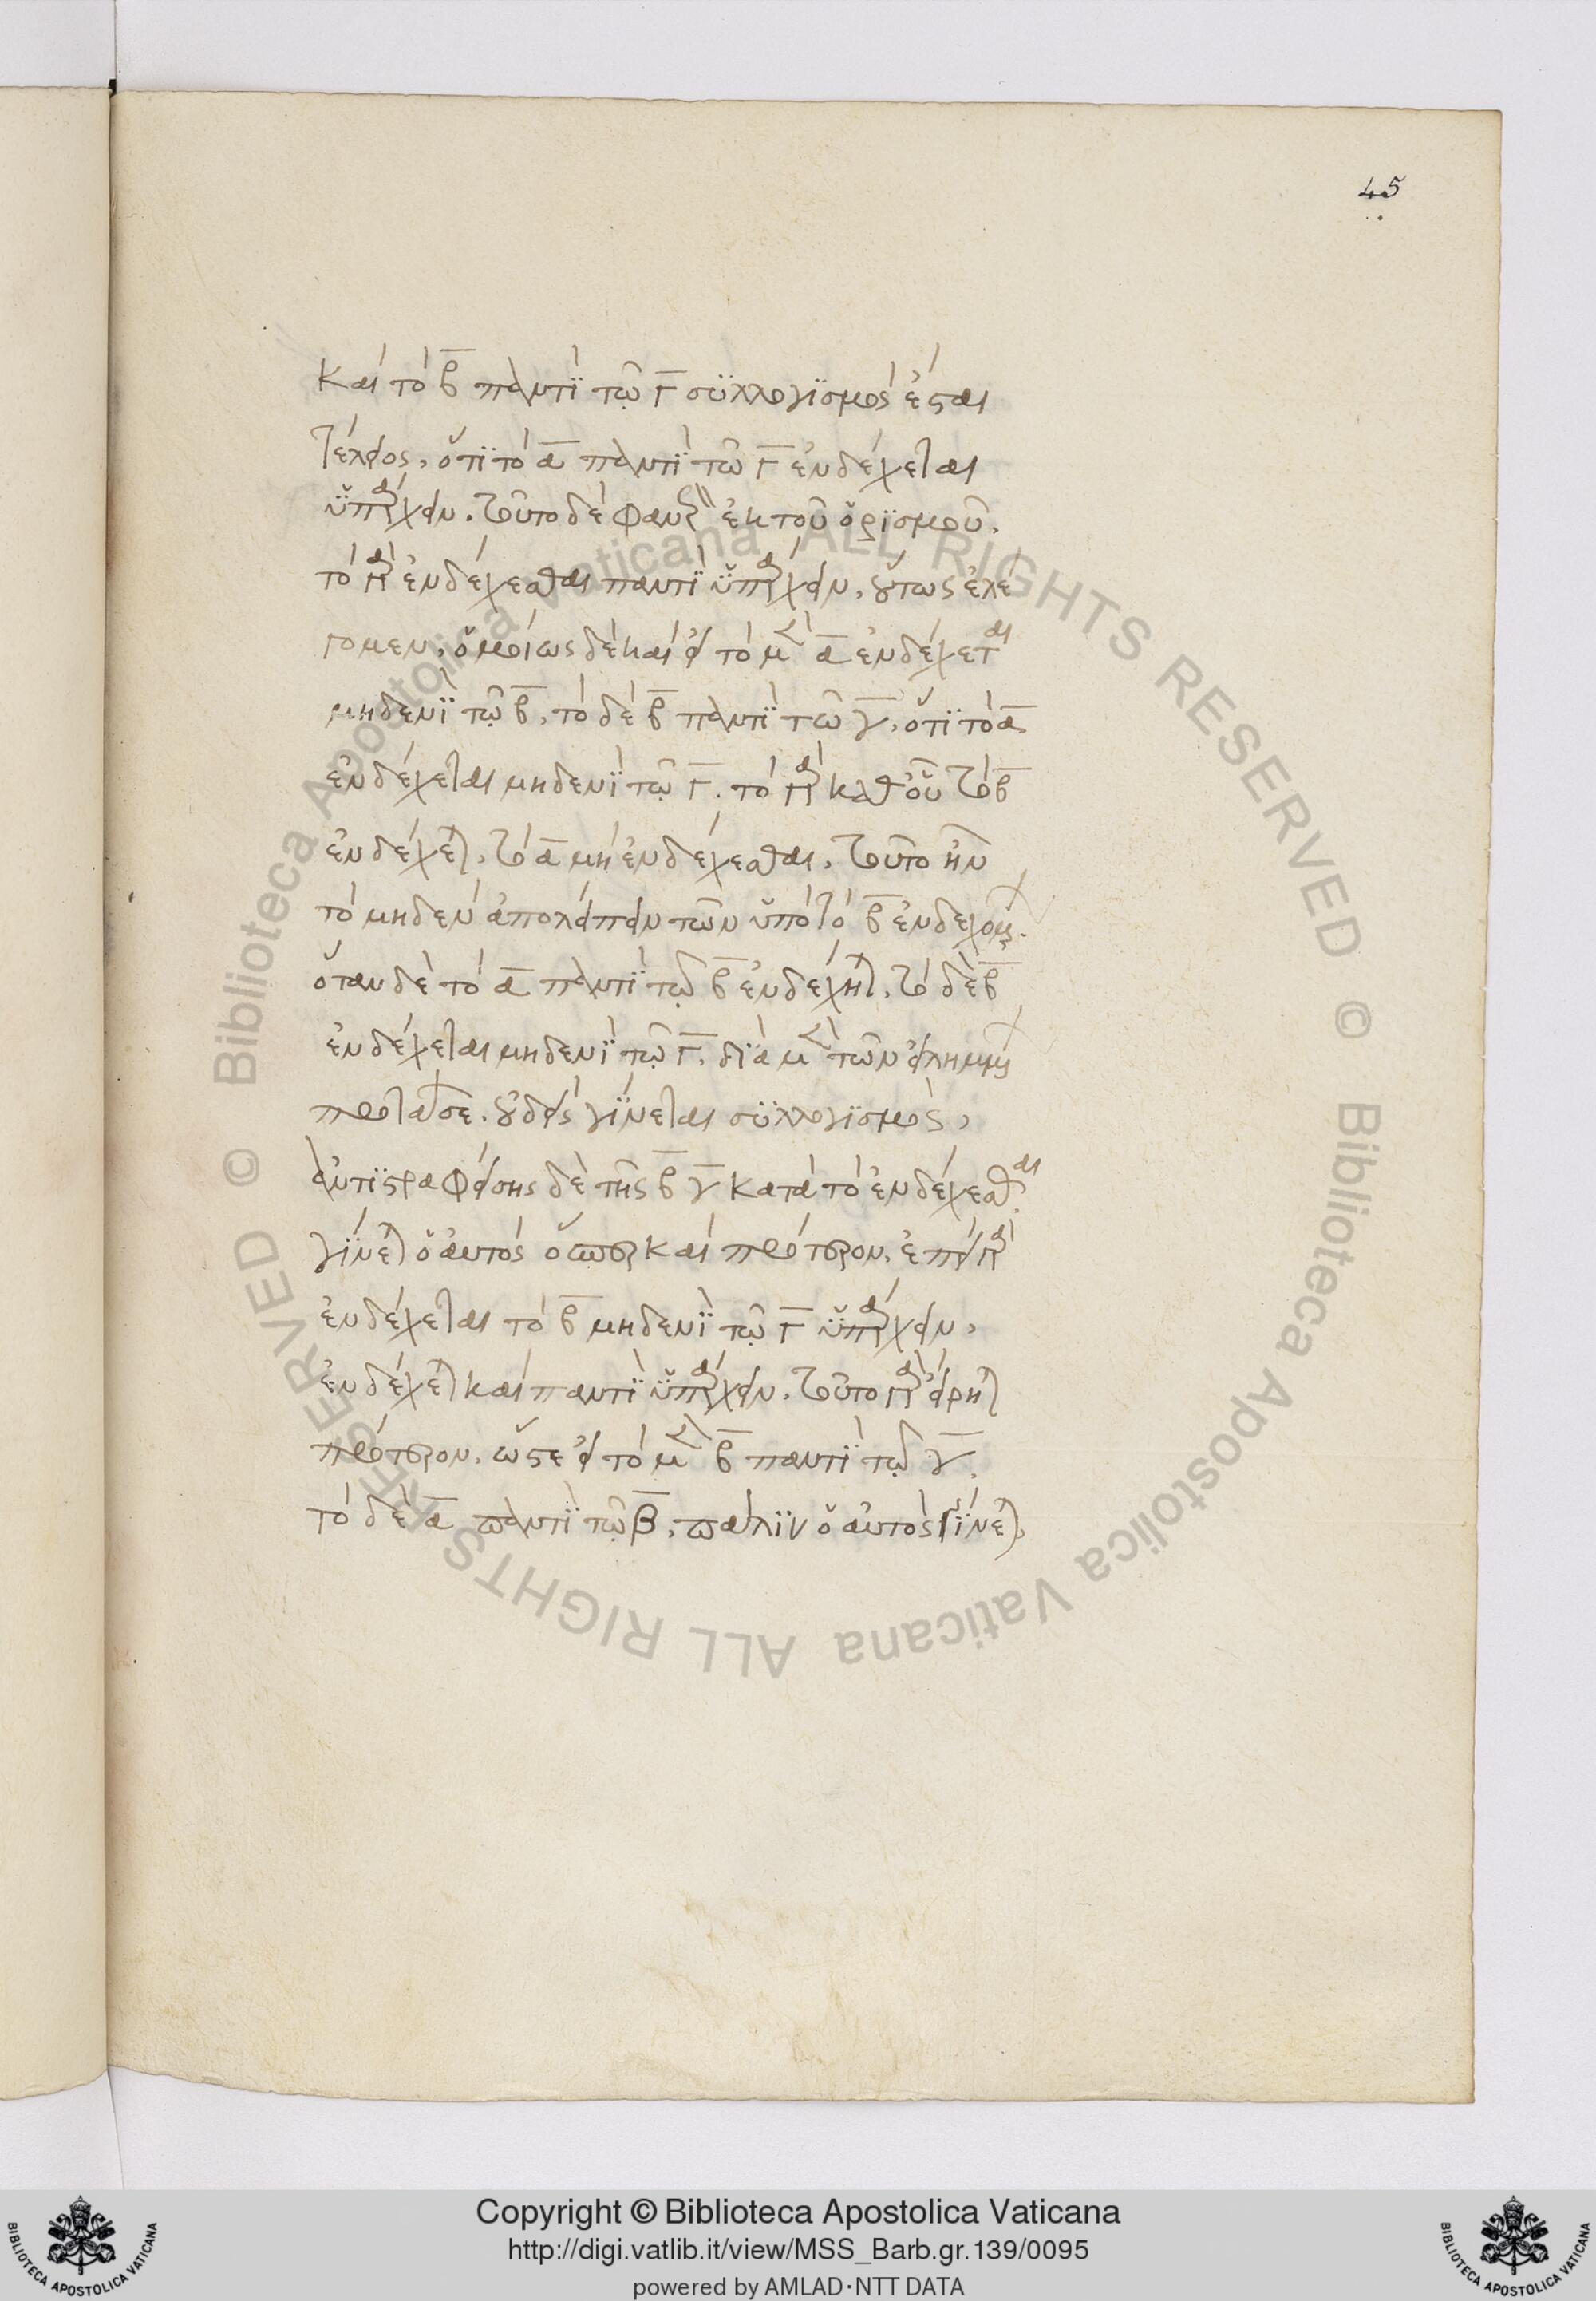 45
καὶ τὸ β̅ παντὶ τῷ Γ̅ συλλογισμὸς ἔσται
τέλειος, ὅτι τὸ α̅ παντὶ τῷ Γ̅ ἐνδέχεται
ὑπάρχειν. τοῦτο δὲ φανερὸν ἐκ τοῦ ὁρισμοῦ.
τὸ γὰρ ἐνδέχεσθαι παντὶ ὑπάρχειν, οὕτως ἐλέ
γομεν, ὁμοίως δὲ καὶ εἰ τὸ μὲν α̅ ἐνδέχεται
μηδενὶ τῷ β̅, τὸ δὲ β̅ παντὶ τῷ γ̅, ὅτι τὸ α̅
ἐνδέχεται μηδενὶ τῷ Γ̅. τὸ γὰρ καθ' οὗ τὸ β̅
ἐνδέχεται, τὸ α̅ μὴ ἐνδέχεσθαι, τοῦτο ἦν
τὸ μηδὲν ἀπολείπειν τῶν ὑπὸ τὸ β̅ ἐνδεχομένων.
ὅταν δὲ τὸ α̅ παντὶ τῷ β̅ ἐνδέχηται, τὸ δὲ β̅
ἐνδέχεται μηδενὶ τῷ Γ̅, διὰ μὲν τῶν εἰλημμένων
προτάσεων. οὐδεὶς γίνεται συλλογισμός,
ἀντιστραφείσης δὲ τῆς β̅ γ̅ κατὰ τὸ ἐνδέχεσθαι
γίνεται ὁ αὐτὸς ὅσπερ καὶ πρότερον, ἐπεὶ γὰρ
ἐνδέχεται τὸ β̅ μηδενὶ τῷ Γ̅ ὑπάρχειν,
ἐνδέχεται καὶ παντὶ ὑπάρχειν. τοῦτο γὰρ εἴρηται
πρότερον, ὥστε εἰ τὸ μὲν β̅ παντὶ τῷ γ̅,
τὸ δὲ α̅ παντὶ τῷ β̅, πάλιν ὁ αὐτὸς γίνεται,
© Biblioteca Apostolica Vaticana ALL RIGHTS RESERVED © Biblioteca Apostolica Vaticana ALL RIGHTS RESERVED
Copyright © Biblioteca Apostolica Vaticana
http://digi.vatlib.it/view/MSS_Barb.gr.139/0095
powered by AMLAD·NTT DATA
BIBLIOTECA APOSTOLICA VATICANA
BIBLIOTECA APOSTOLICA VATICANA